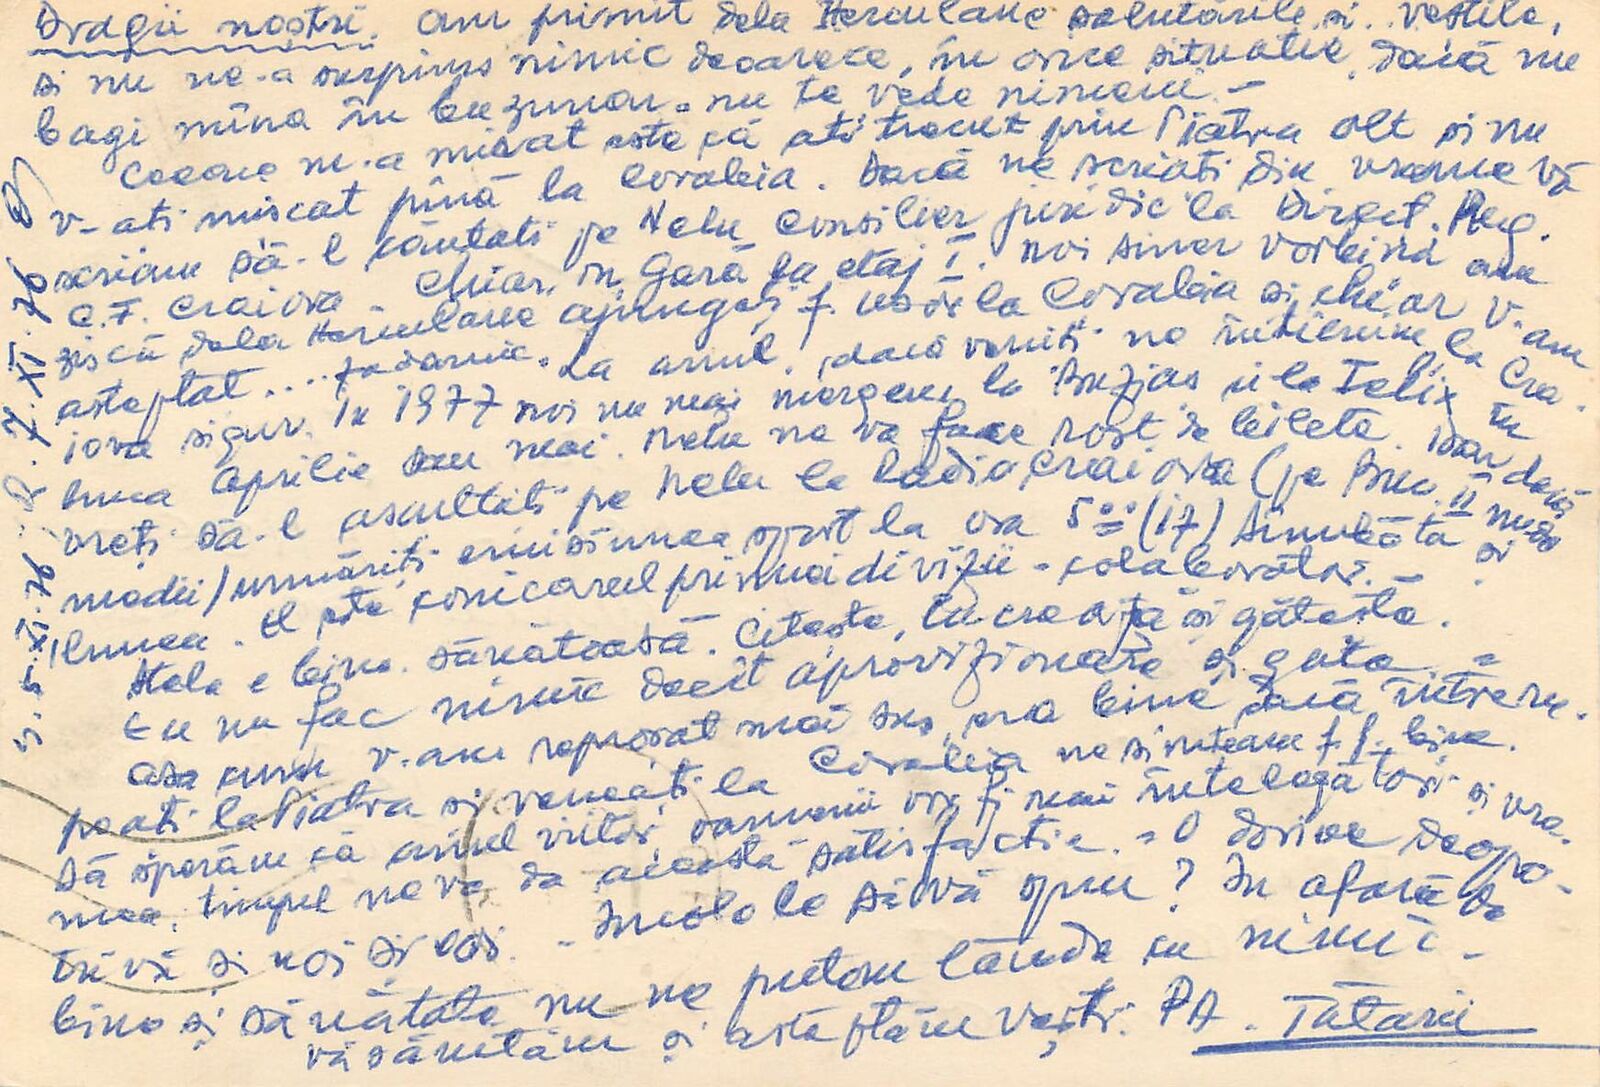 Dragii noștri, am primit dela Herculane salutările și vestile,
si nu ne-a surprins nimic deoarece, în orce situatie, dacă nu
bagi mîna în buzunar nu te vede nimeni. –
Ceeace m-a mirat este că ati trecut prin Piatra Olt si nu
v-ati miscat pînă la Corabia. Dacă ne scriati din vreme vă
scriam să-l căutati pe Nelu consilier juridic la Direct. Reg.
C.F. Craiova. Chiar în Gară la etaj I. noi vorbind am
zis că dela Herculane ajungeți f. usor la Corabia si chiar v-am
asteptat .... zadarnic. La anul, dacă veniti ne întîlnim la Cra-
iova sigur. In 1977 noi nu mai mergem la Buzias ci la Felix în
luna Aprilie sau mai. Nelu ne va face rost de bilete. Iar dacă
vreți să-l ascultati pe Nelu la Radio Craiova (pe Buc. II unde
medii) urmăriti emisiunea sport la ora 5⁰⁰ (17) Sîmbăta si
lunea. El este cronicarul primei divizii – colaborator. –
e bine sănătoasă. Citeste, lucrează și gătește.
Eu nu fac nimic decît aprovizionare și gata. =
Asa cum v-am reprosat mai sus, era bine dacă intreru-
peati la Piatra si veneati la Corabia ne simteam f. f. bine.
Să sperăm că anul viitor oamenii vor fi mai întelegători si vre-
mea, timpul ne va da această satisfactie. = O dorim deopo-
trivă și noi și voi. – să vă spun? In afară de
bine și sănătate nu ne putem lăuda cu nimic –
vă sărutăm și asteptăm vești. PA. Tătarii
5.XI.76 7.XI.76